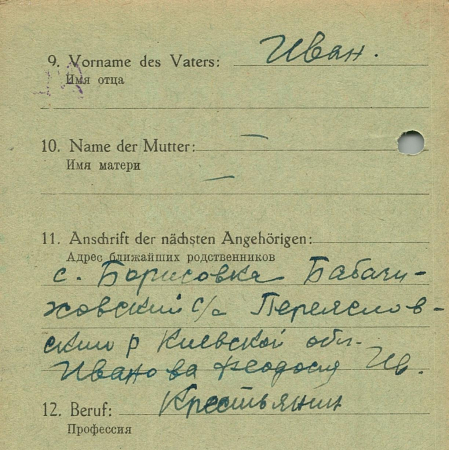 9. Vorname des Vaters: Иван.
Имя отца
10. Name der Mutter: —
Имя матери —
11. Anschrift der nächsten Angehörigen:
Адрес ближайших родственников
с. Борисовка Бабачи-
ховский с/с Переяслов-
ским р Киевской обл.
Иванова Феодосия Ив.
12. Beruf: Крестьянин
Профессия